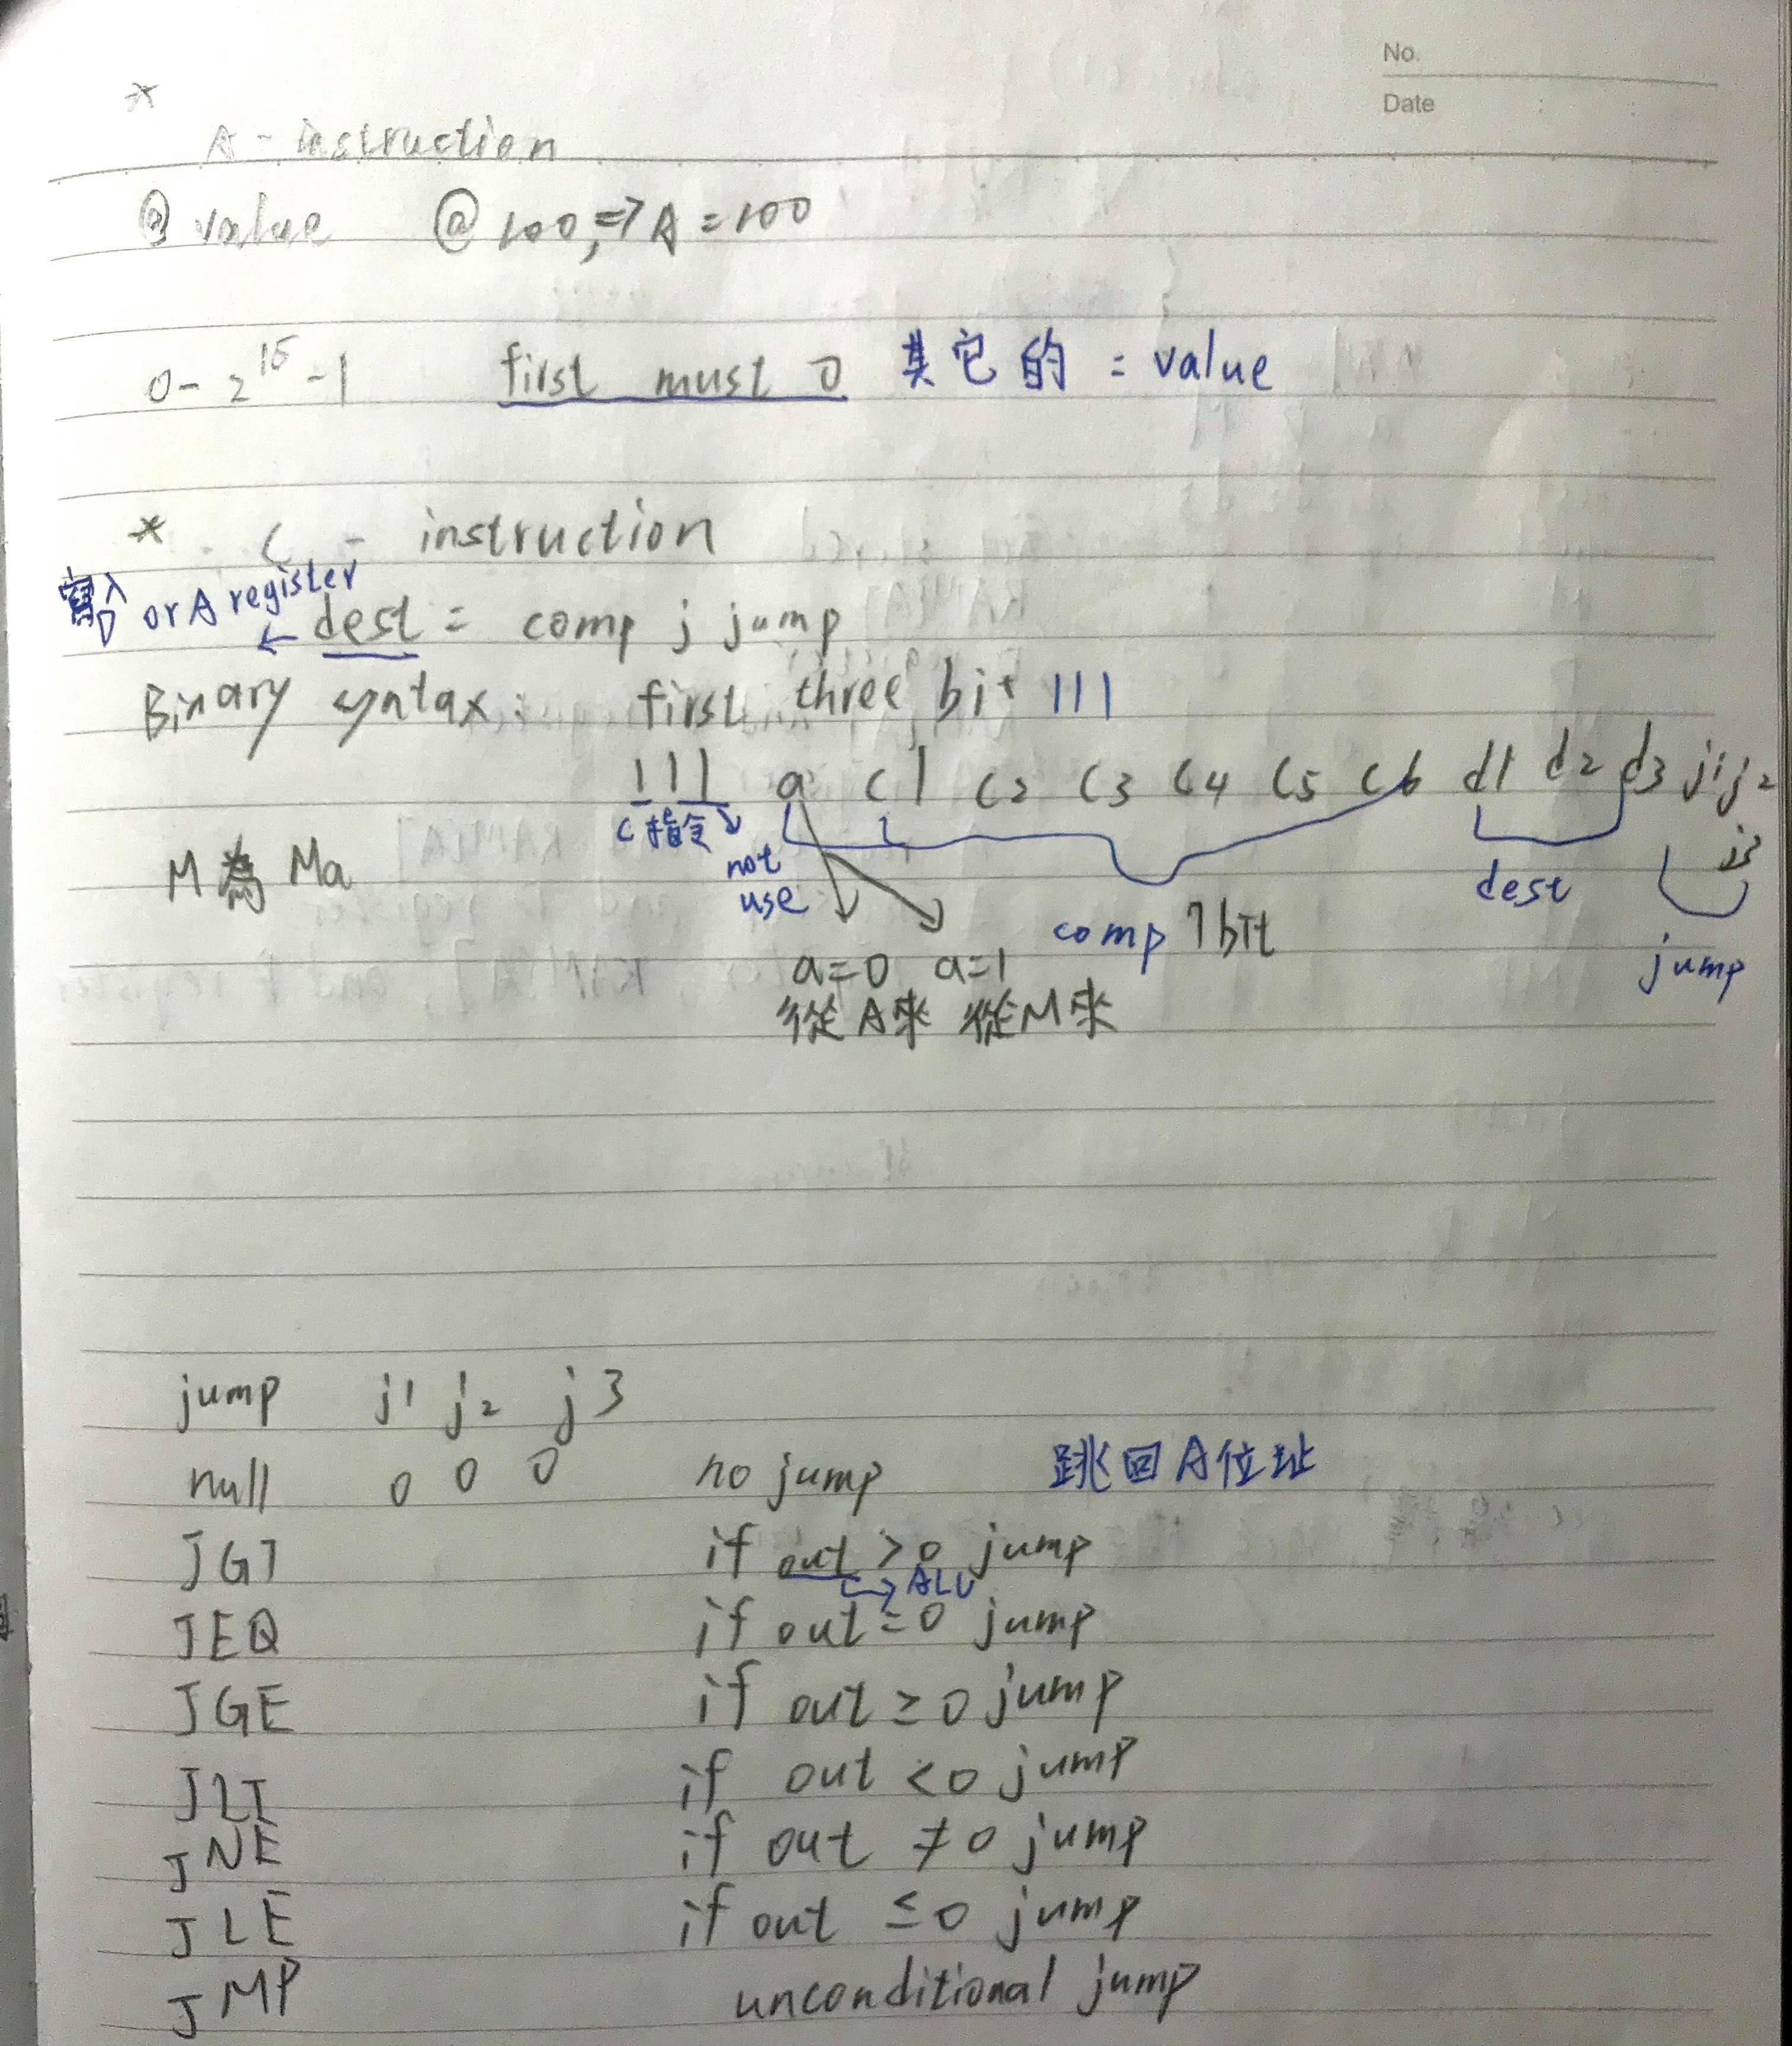 No.
Date : :
*
A - instruction
@ value @ 100, => A = 100
0 - 2^15 - 1 first must 0 其它的 = value
* C - instruction
寫入D or A register
← dest = comp ; jump
Binary syntax : first three bit 111
111 a c1 c2 c3 c4 c5 c6 d1 d2 d3 j1 j2 j3
C指令 not use
M為Ma
comp 7bit dest jump
a=0 a=1
從A來 從M來
jump j1 j2 j3
null 0 0 0 no jump 跳回A位址
JGT if out > 0 jump
→ ALU
JEQ if out = 0 jump
JGE if out ≥ 0 jump
JLT if out < 0 jump
JNE if out ≠ 0 jump
JLE if out ≤ 0 jump
JMP unconditional jump